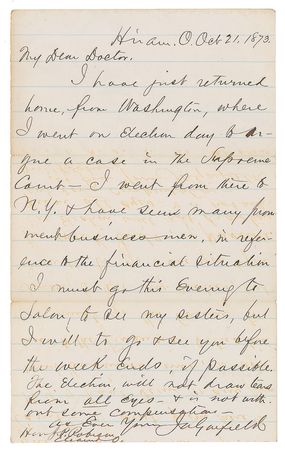 Hiram, O. Oct 21, 1873.
My Dear Doctor.
I have just returned
home, from Washington, where
I went on Election day to ar-
gue a case in the Supreme
Court — I went from there to
N.Y. & have seen many prom
inent business men, in refer-
ence to the financial situation
I must go this Evening to
Solon, to see my sisters, but
I will to go & see you before
the week ends, if possible.
The Election, will not draw tears
from all eyes — & is not with-
out some compensations —
As Ever Yours J.A. Garfield
Hon J.P. Robison